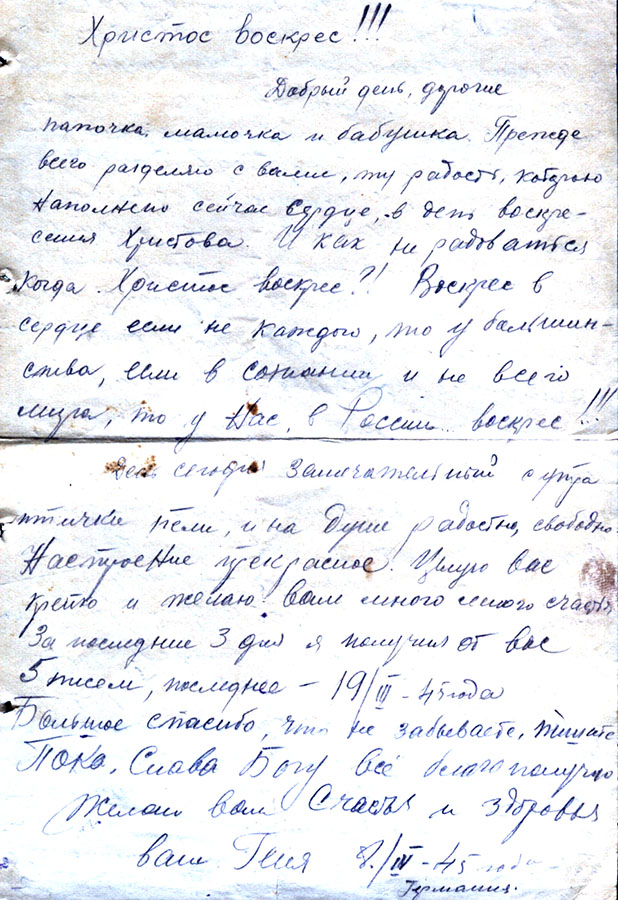 Христос воскрес!!!
Добрый день, дорогие
папочка, мамочка и бабушка. Прежде
всего разделяю с вами, ту радость, которою
наполнено сейчас сердце, в день воскре-
сения Христова. И как не радоваться
когда Христос воскрес?! Воскрес в
сердце если не каждого, то у большин-
ства, если в сознании и не всего
мира, то у нас, в России воскрес!!!
День сегодня замечательный с утра
птички пели, и на душе радостно, свободно.
Настроение прекрасное. Целую вас
крепко и желаю вам много много счастья
За последние 3 дня я получил от вас
5 писем, последнее – 19/III – 45 года
Большое спасибо, что не забываете, пишите
Пока, Слава Богу всё благополучно
Желаю вам счастья и здоровья
ваш Геня 8/IV – 45 года –
Германия.